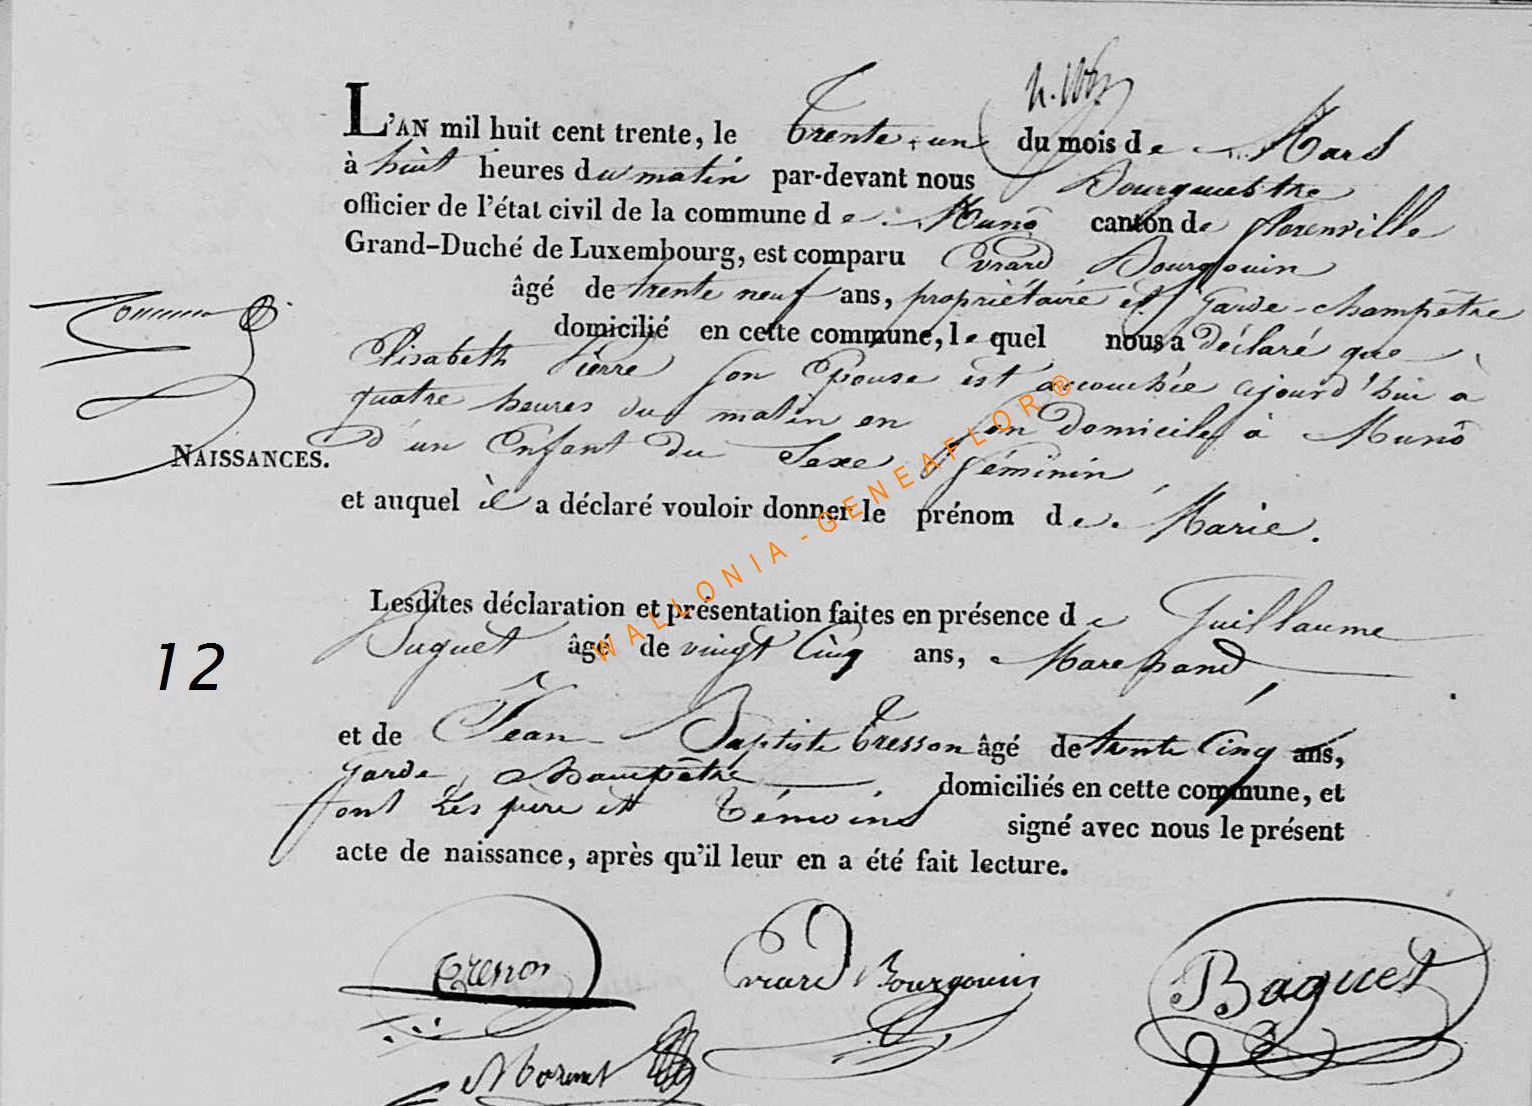 L'AN mil huit cent trente, le trente-un du mois de Mars
à huit heures du matin par-devant nous Bourguestre
officier de l'état civil de la commune de Muno canton de florenville
Grand-Duché de Luxembourg, est comparu Evrard Bourgouin
âgé de trente neuf ans, propriétaire et garde-champêtre
domicilié en cette commune, lequel nous a déclaré que
Elisabeth Pierre son Epouse est accouchée ajourd'hui à
quatre heures du matin en son Domicile à Muno
d'un Enfant du Sexe féminin,
NAISSANCES.
et auquel il a déclaré vouloir donner le prénom de Marie.
Lesdites déclaration et présentation faites en présence de Guillaume
Buguet âgé de vingt Cinq ans, Marchand
12
et de Jean Baptiste Tresson âgé de trente Cinq ans,
garde champêtre domiciliés en cette commune, et
ont les père et témoins signé avec nous le présent
acte de naissance, après qu'il leur en a été fait lecture.
Tresson Evrard Bourgouin Baguet
WALLONIA-GENEAFLOR®